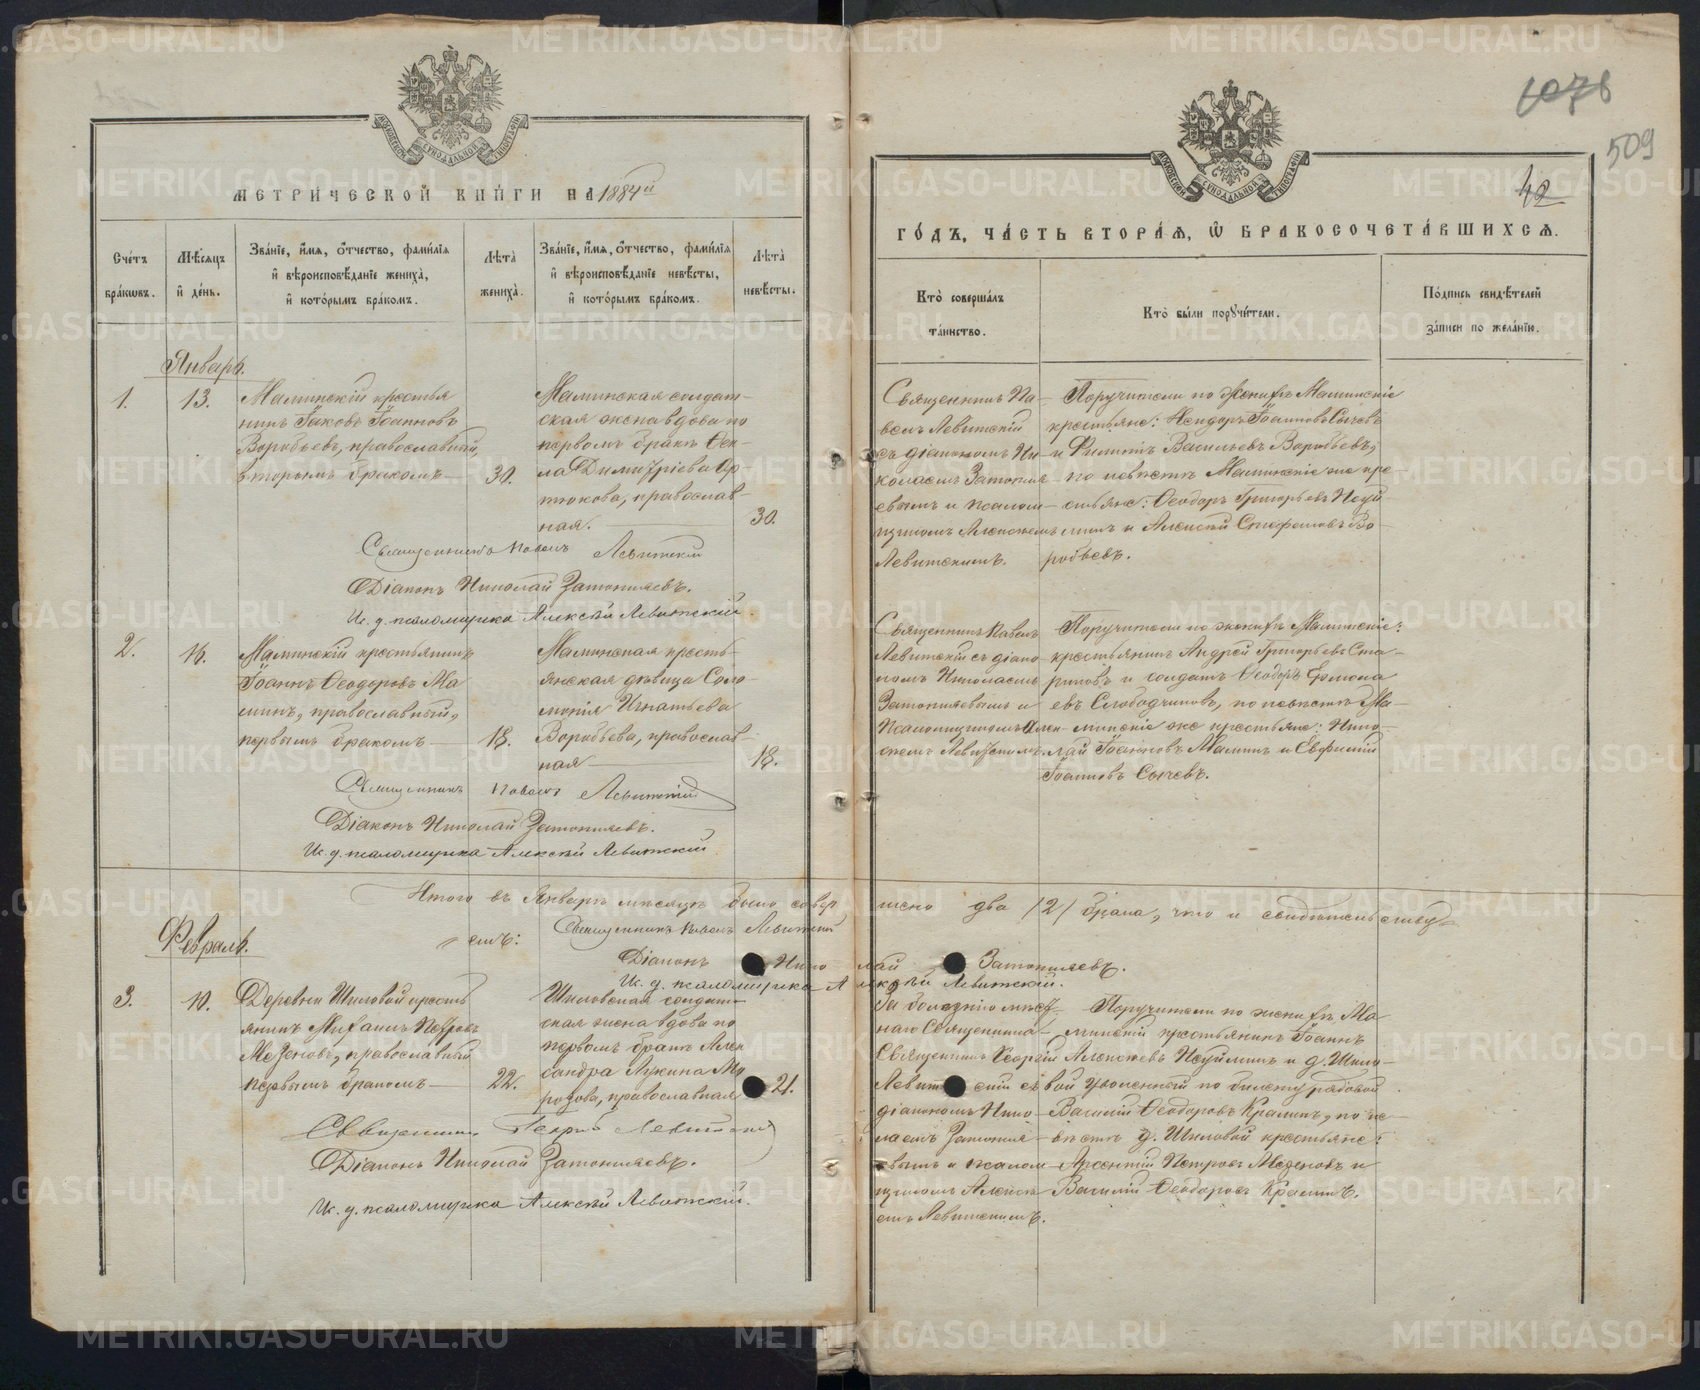 МЕТРИЧЕСКОЙ КНИГИ НА 1884й
Счетъ браковъ.
Мѣсяцъ и день.
Званіе, имя, отчество, фамилія и вѣроисповѣданіе жениха, и которымъ бракомъ.
Лѣта жениха.
Званіе, имя, отчество, фамилія и вѣроисповѣданіе невѣсты, и которымъ бракомъ.
Лѣта невѣсты.
Январь.
1.
13.
Маминскій крестья
нинъ Іаковъ Іоанновъ
Воробьевъ, православный,
вторымъ бракомъ
30.
Маминская солдат-
ская жена вдова по
первомъ бракѣ Ѳек-
ла Димитріева Ор-
тюкова, православ-
ная.
30.
Священникъ Павелъ Левитскій
Діаконъ Николай Затопляевъ.
Ис. д. псаломщика Алексѣй Левитскій.
2.
16.
Маминскій крестьянинъ
Іоаннъ Ѳеодоровъ Ма
минъ, православный,
первымъ бракомъ
18.
Маминская кресть-
янская дѣвица Соло-
монія Игнатьева
Воробьева, православ-
ная
18.
Священникъ Павелъ Левитскій
Діаконъ Николай Затопляевъ.
Ис. д. псаломщика Алексѣй Левитскій
Итого въ Январѣ мѣсяцѣ было совер
емъ:
Священникъ Павелъ Левитскій
Діаконъ Нико
Ис. д. псаломщика А
Февраль.
3.
10.
Деревни Шиловой кресть
янинъ Михаилъ Петровъ
Мезеновъ, православный
первымъ бракомъ
22.
Шиловская солдат
ская жена вдова по
первомъ бракѣ Алек
сандра Лукина Мо
розова, православная
21.
Священникъ Георгій Левитскій
Діаконъ Николай Затопляевъ.
Ис. д. псаломщика Алексѣй Левитскій.
1076
509
42
ГОДЪ, ЧАСТЬ ВТОРАЯ, Ѡ БРАКОСОЧЕТАВШИХСЯ.
Кто совершалъ таинство.
Кто были поручители.
Подпись свидѣтелей записи по желанію.
Священникъ Па-
велъ Левитскій
съ діакономъ Ни-
колаемъ Затопля-
евымъ и псалом-
щикомъ Алексѣемъ
Левитскимъ.
Поручители по женихѣ Маминскіе
крестьяне: Исидоръ Іоанновъ Сычевъ
и Филиппъ Васильевъ Воробьевъ,
по невѣстѣ Маминскіе же кре-
стьяне: Ѳеодоръ Григорьевъ Неуй-
минъ и Алексѣй Стефановъ Во-
робьевъ.
Священникъ Павелъ
Левитскій съ діако-
номъ Николаемъ
Затопляевымъ и
Псаломщикомъ Алек-
сѣемъ Левитскимъ
Поручители по женихѣ Маминскіе:
крестьянинъ Андрей Григорьевъ Ста-
риковъ и солдатъ Ѳеодоръ Ермола-
евъ Слободчиковъ, по невѣстѣ Ма-
минскіе же крестьяне: Нико-
лай Іоанновъ Маминъ и Евфимій
Іоанновъ Сычевъ.
шено два /2/ брака, что и свидѣтельству-
лай Затопляевъ.
лексѣй Левитскій.
За болезнію мѣст
наго Священника
Священникъ Георгій
Левитскій съ
діакономъ Нико
лаемъ Затопля
евымъ и псалом
щикомъ Алексѣ
емъ Левитскимъ.
Поручители по женихѣ Ма-
минскій крестьянинъ Іоаннъ
Алексѣевъ Неуйминъ и д. Шило-
вой уволенный по билету рядовой
Василій Ѳеодоровъ Краминъ, по не-
вѣстѣ д. Шиловой крестьяне:
Арсентій Петровъ Мезеновъ и
Василій Ѳеодоровъ Краминъ.